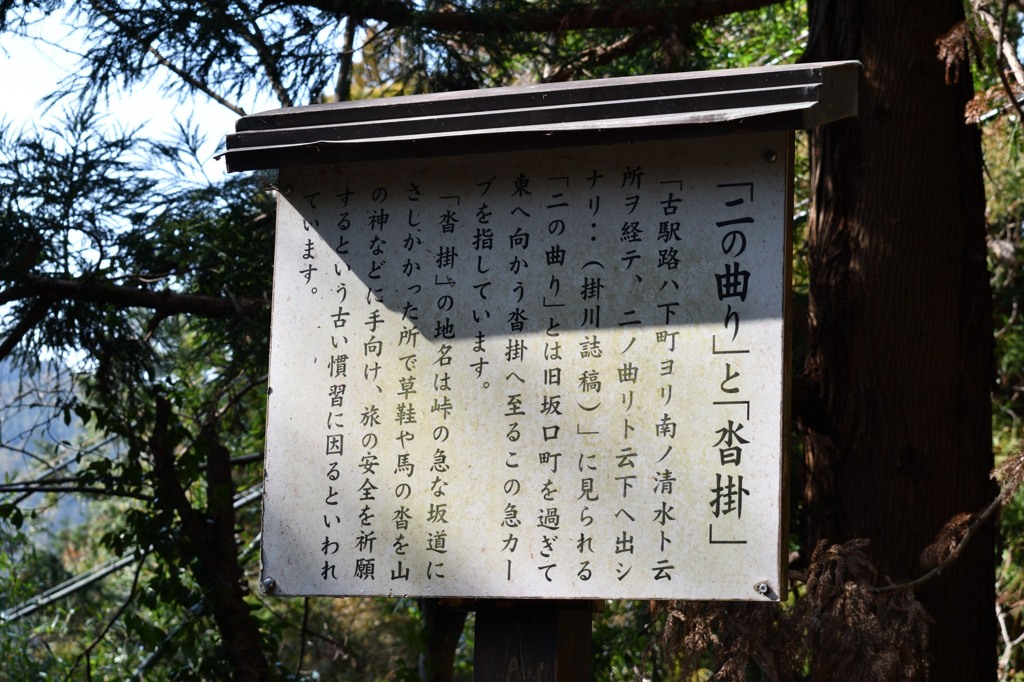 「二の曲り」と「沓掛」
「古駅路ハ下町ヨリ南ノ清水ト云
所ヲ経テ、二ノ曲リト云下ヘ出シ
ナリ‥（掛川誌稿）」に見られる
「二の曲り」とは旧坂口町を過ぎて
東へ向かう沓掛へ至るこの急カー
ブを指しています。
「沓掛」の地名は峠の急な坂道に
さしかかった所で草鞋や馬の沓を山
の神などに手向け、旅の安全を祈願
するという古い慣習に因るといわれ
ています。